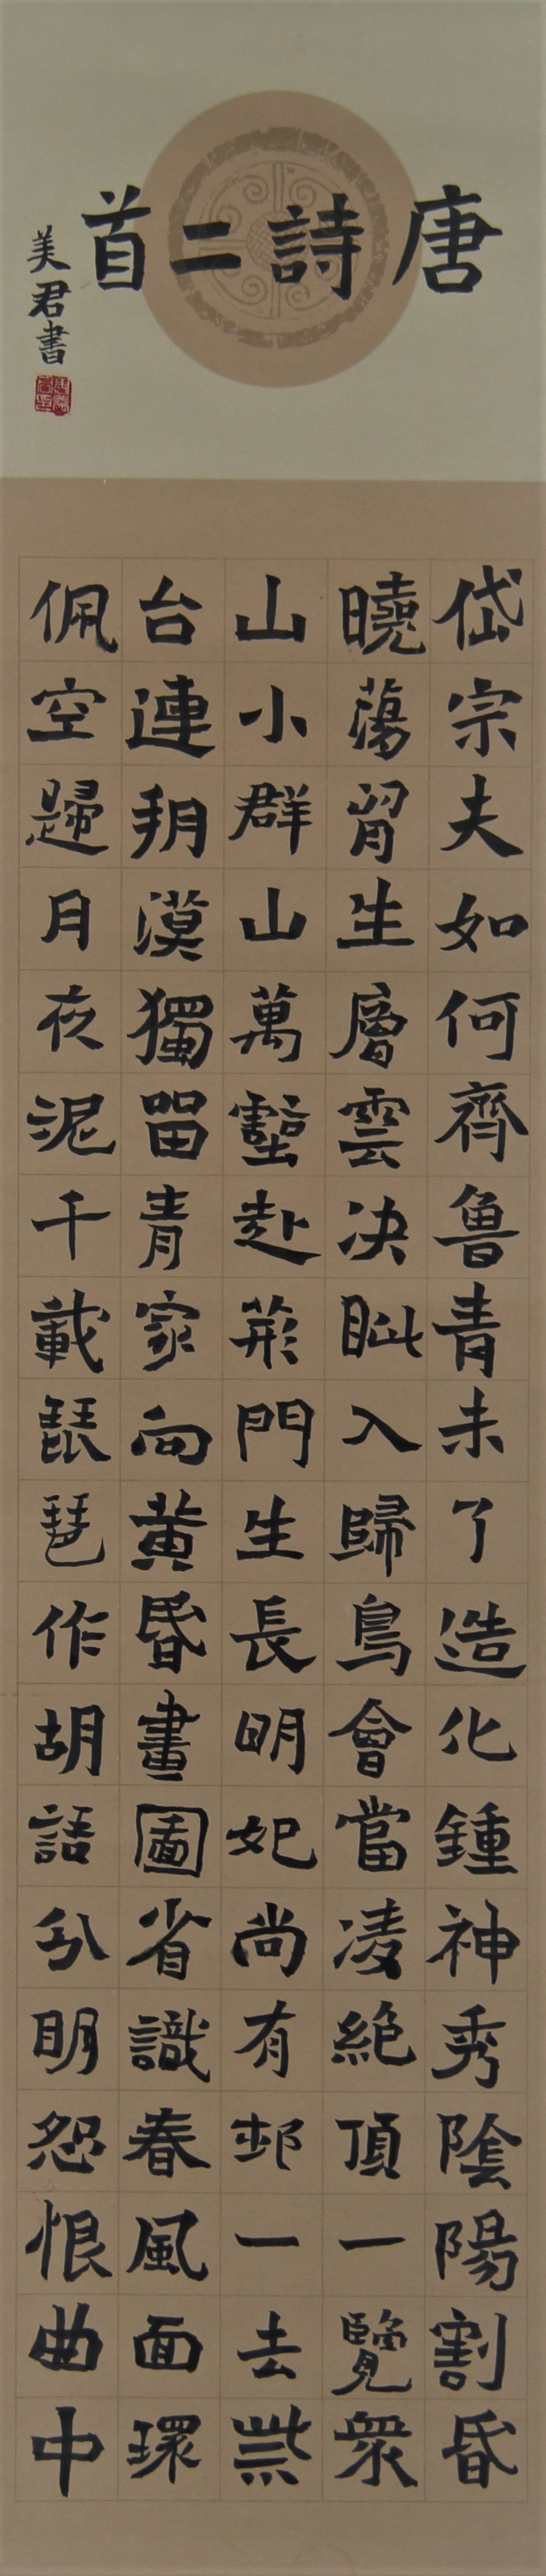 唐詩二首
美君書
岱宗夫如何齊魯青未了造化鍾神秀陰陽割昏
曉蕩胷生層雲决眦入歸鳥會當凌絶頂一覽衆
山小群山萬壑赴荆門生長明妃尚有邨一去紫
台連朔漠獨留青家向黃昏畫圖省識春風面環
佩空歸月夜泥千載琵琶作胡語分明怨恨曲中